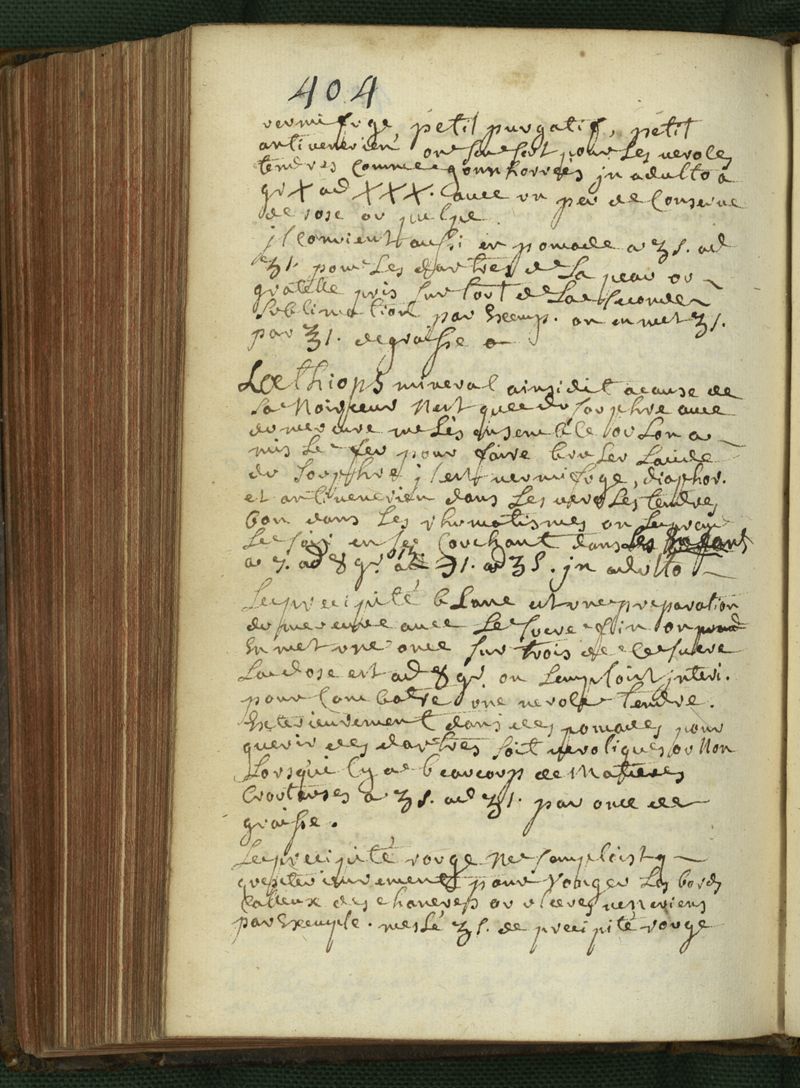 404
vermifvge, petit purgatif, petit
antivenerien on sen sert pour Les veroles
tendres Comme gonnhorrées jn adulto a
gr X ad XXX. avec vn peu de Conserve
de rose ov pulpe
jl Convient aussi en pomade a ʒ s. ad
ʒ 1. pour Les dartres de La peau ov
gratelle pris sur tovt de La seconde
svblimation par Exemp. on en met ʒ 1.
par ℥ 1. de graisse
Lœthiops mineral ainsi dit acause de
sa Noirceur Nest que dv sovphre avec
dv mercvre meslés ensemble ov Lon a
mis Le fev pour faire brvler Lacide
dv sovphre jl est vermifvge, diaphor.
et antivenerien dans Les veroles tendres
bon dans Les rhvmatismes on Le prend
Le soir en se Covchant dans Les Enfans
a 7. ad 8 gr. ϶ 1. a ʒ s. jn adulto
Le precipité blanc est vne preparation
dv mercvre avec Le svcre fin on
En met vne once svr trois de Le svcre
La dose est ad 8 gr. on Lemploit jnteri.
pour Combatre vne verole tendre.
Exterieurement dans des pomades pour
guerir des dartres soit veroliques ov Non
Lorsquil y a beavcovp de Matieres
Crovteuses a ʒ s. ad ʒ 1. par once de
graisse.
Le precipité rovge Ne semploist
qvexterieurement pour ronger Les bords
Calleux des chancres ov vlceres veneriens
par Exemple. meslé ʒ s. de precipité rovge